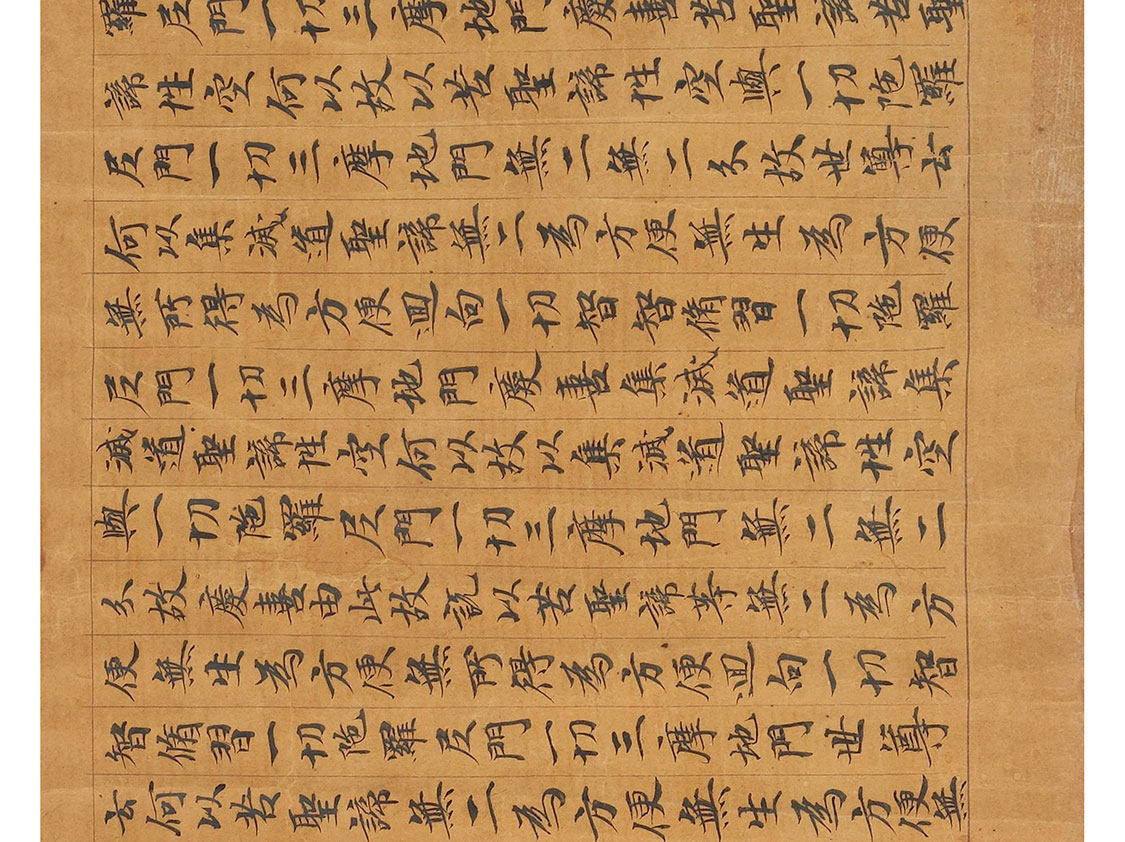 羅尼門一切三摩地門慶喜苦聖諦苦聖
諦性空何以故以苦聖諦性空與一切陀羅
尼門一切三摩地門無二無二分故世尊云
何以集滅道聖諦無二為方便無生為方便
無所得為方便迴向一切智智脩習一切陀羅
尼門一切三摩地門慶喜集滅道聖諦集
滅道聖諦性空何以故以集滅道聖諦性空
與一切陀羅尼門一切三摩地門無二無二
分故慶喜由此故說以苦聖諦等無二為方
便無生為方便無所得為方便迴向一切智
智脩習一切陀羅尼門一切三摩地門世尊
云何以苦聖諦無二為方便無生為方便無